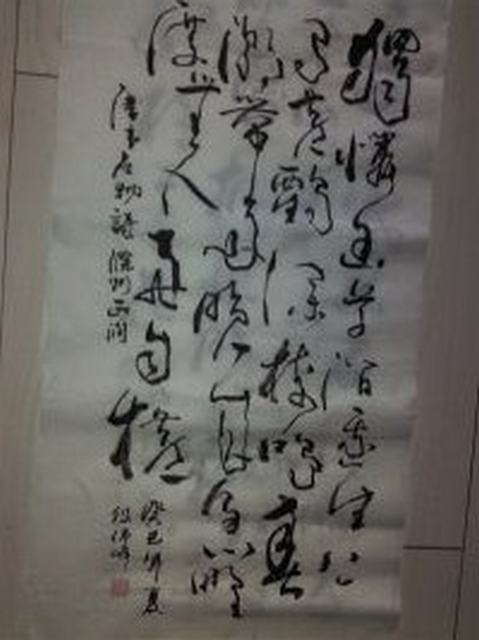 獨憐幽草澗邊生上
有黄鸝深樹鳴春
潮帶雨晚来急野
渡無人舟自橫
唐韋应物詩滁州西澗
癸巳年夏